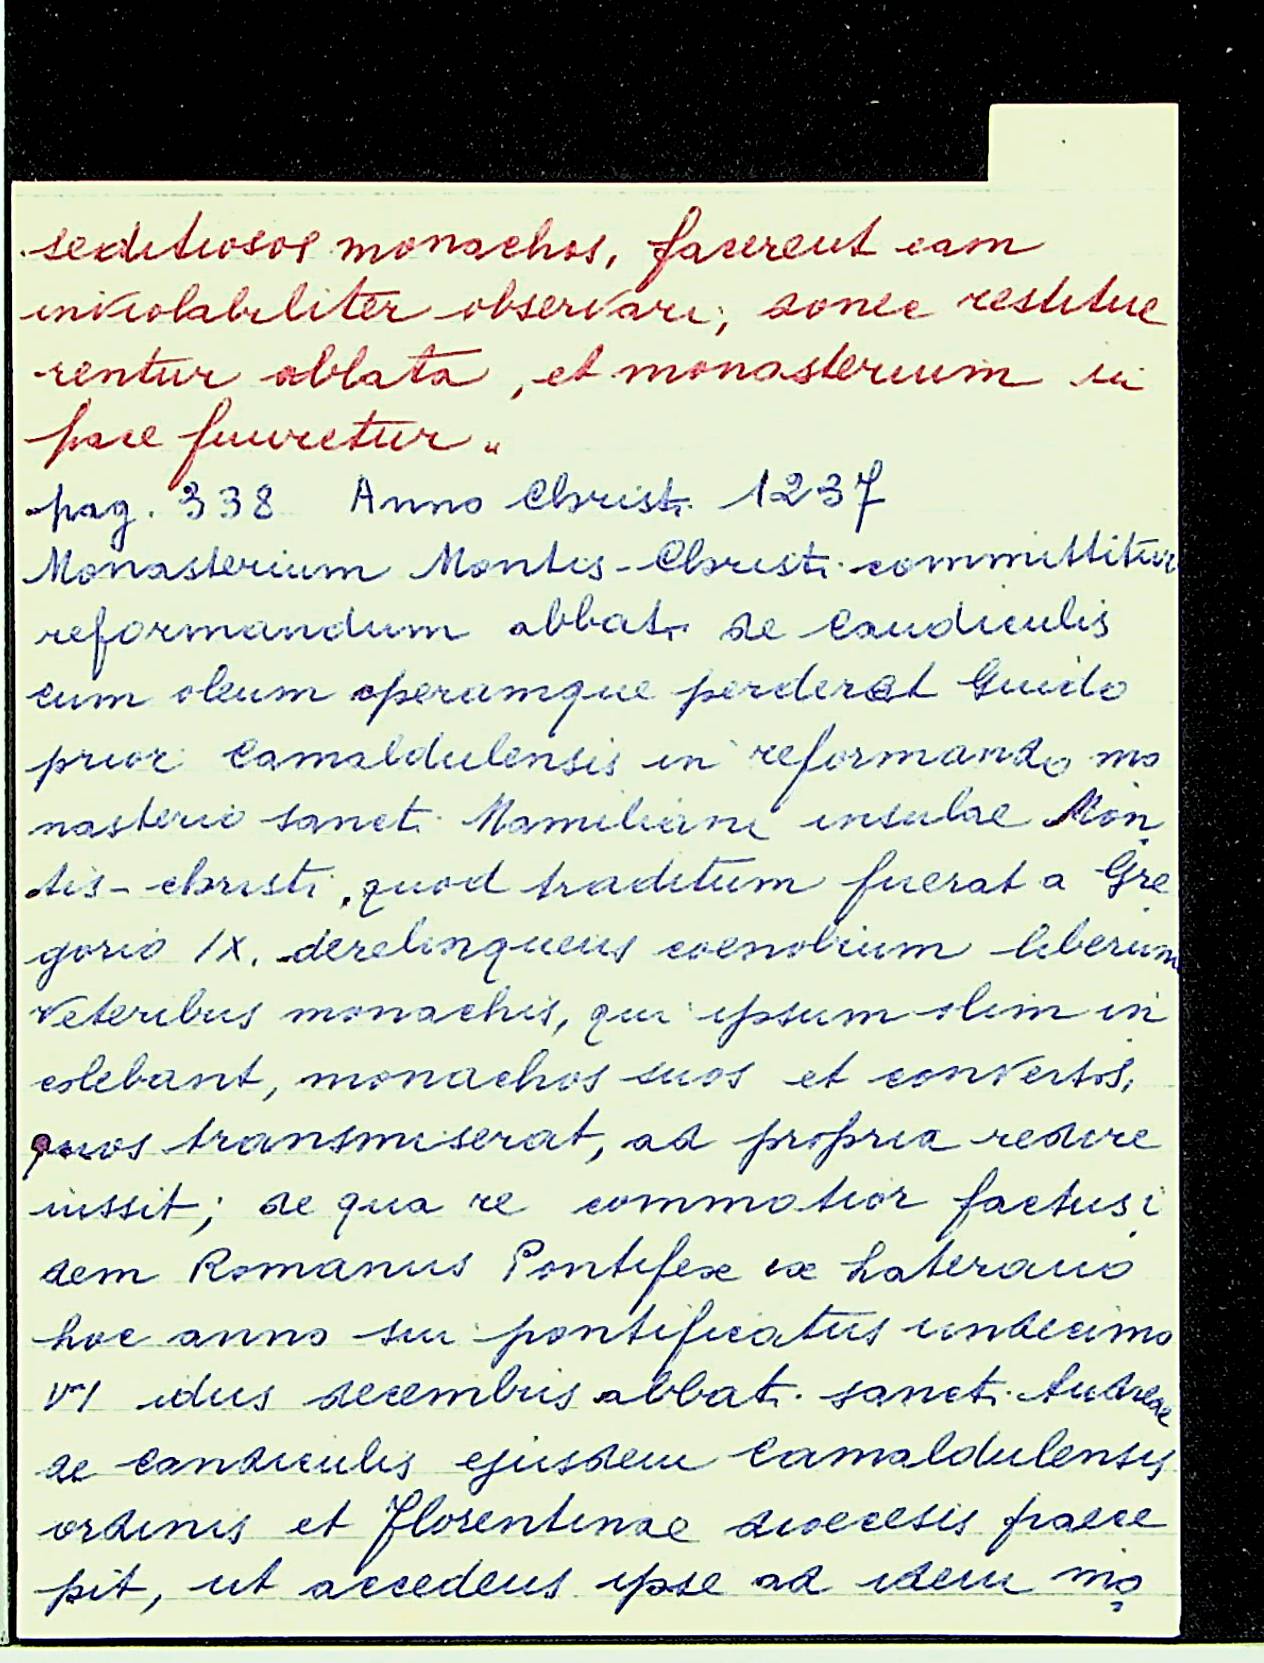 seditiosos monachos, facerent eam
inviolabiliter observari; donec restitue
rentur ablata, et monasterium in
pace frueretur"
pag. 338 Anno Christi 1237
Monasterium Montis-Christi committitur
reformandum abbati de Candiculis
cum oleum operamque perderet Guido
prior Camaldulensis in reformando mo
nasterio sancti Mamiliani insulae Mon
tis-christi, quod traditum fuerat a Gre
gorio IX. derelinquens coenobium liberum
veteribus monachis, qui ipsum olim in
colebant, monachos suos et conversos,
quos transmiserat, ad propria redire
iussit; de qua re commotior factus i
dem Romanus Pontifex ex Laterano
hoc anno sui pontificatus undecimo
VI idus decembris abbati sancti Andreae
de Candiculis ejusdem Camaldulensis
ordinis et Florentinae dioecesis praece
pit, ut accedens ipse ad idem mo